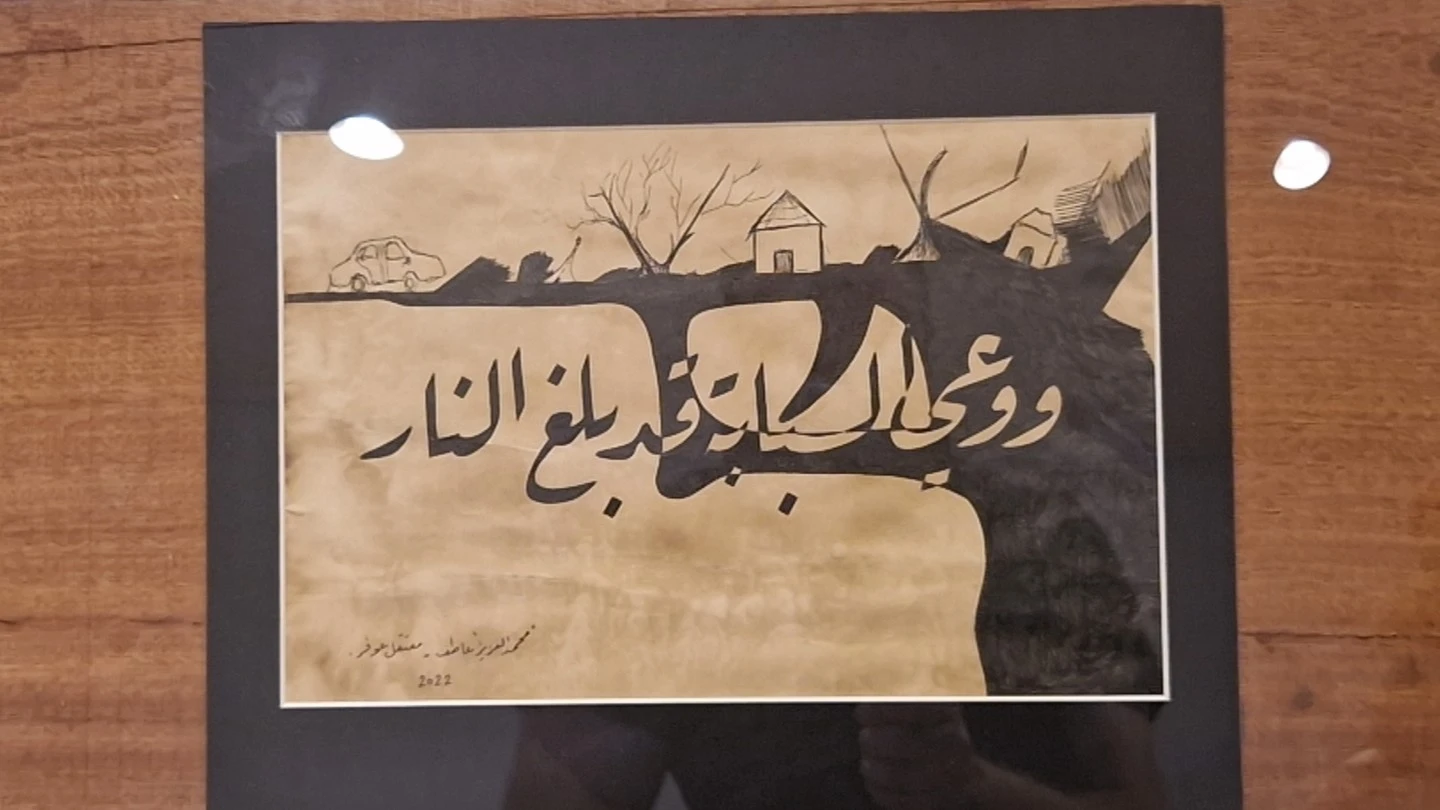 ووعي السبابة قد بلغ النار
محمد العزيز عاطف - معتقل عوفر.
2022